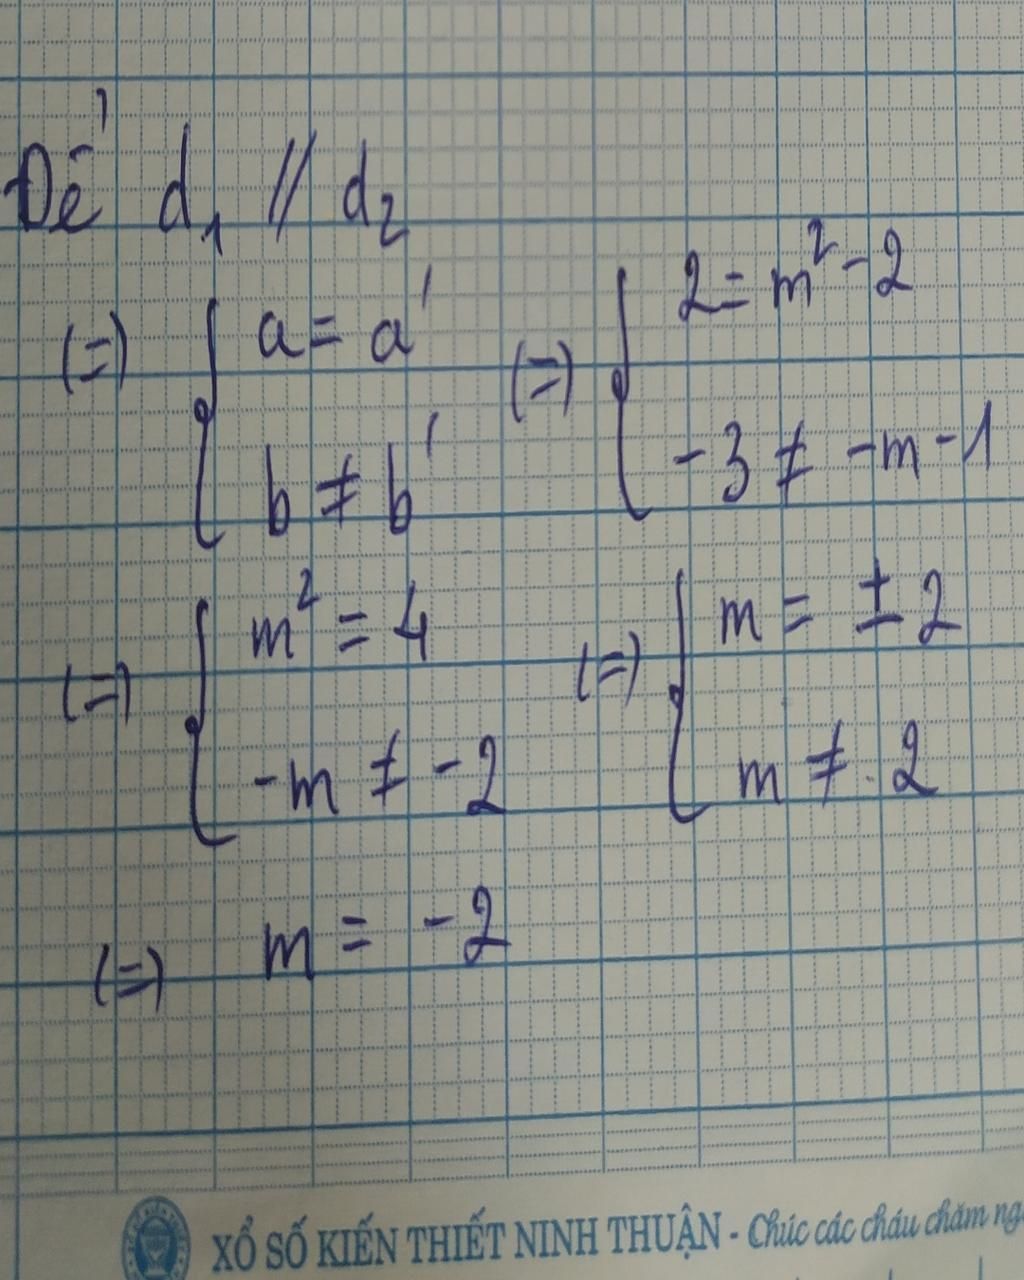 Để d₁ // d₂
(=) { a = a' (=) { 2 = m² - 2
b ≠ b' -3 ≠ -m - 1
(=) { m² = 4 (=) { m = ± 2
-m ≠ -2 m ≠ 2
(=) m = -2
XỔ SỐ KIẾN THIẾT NINH THUẬN - Chúc các cháu chăm